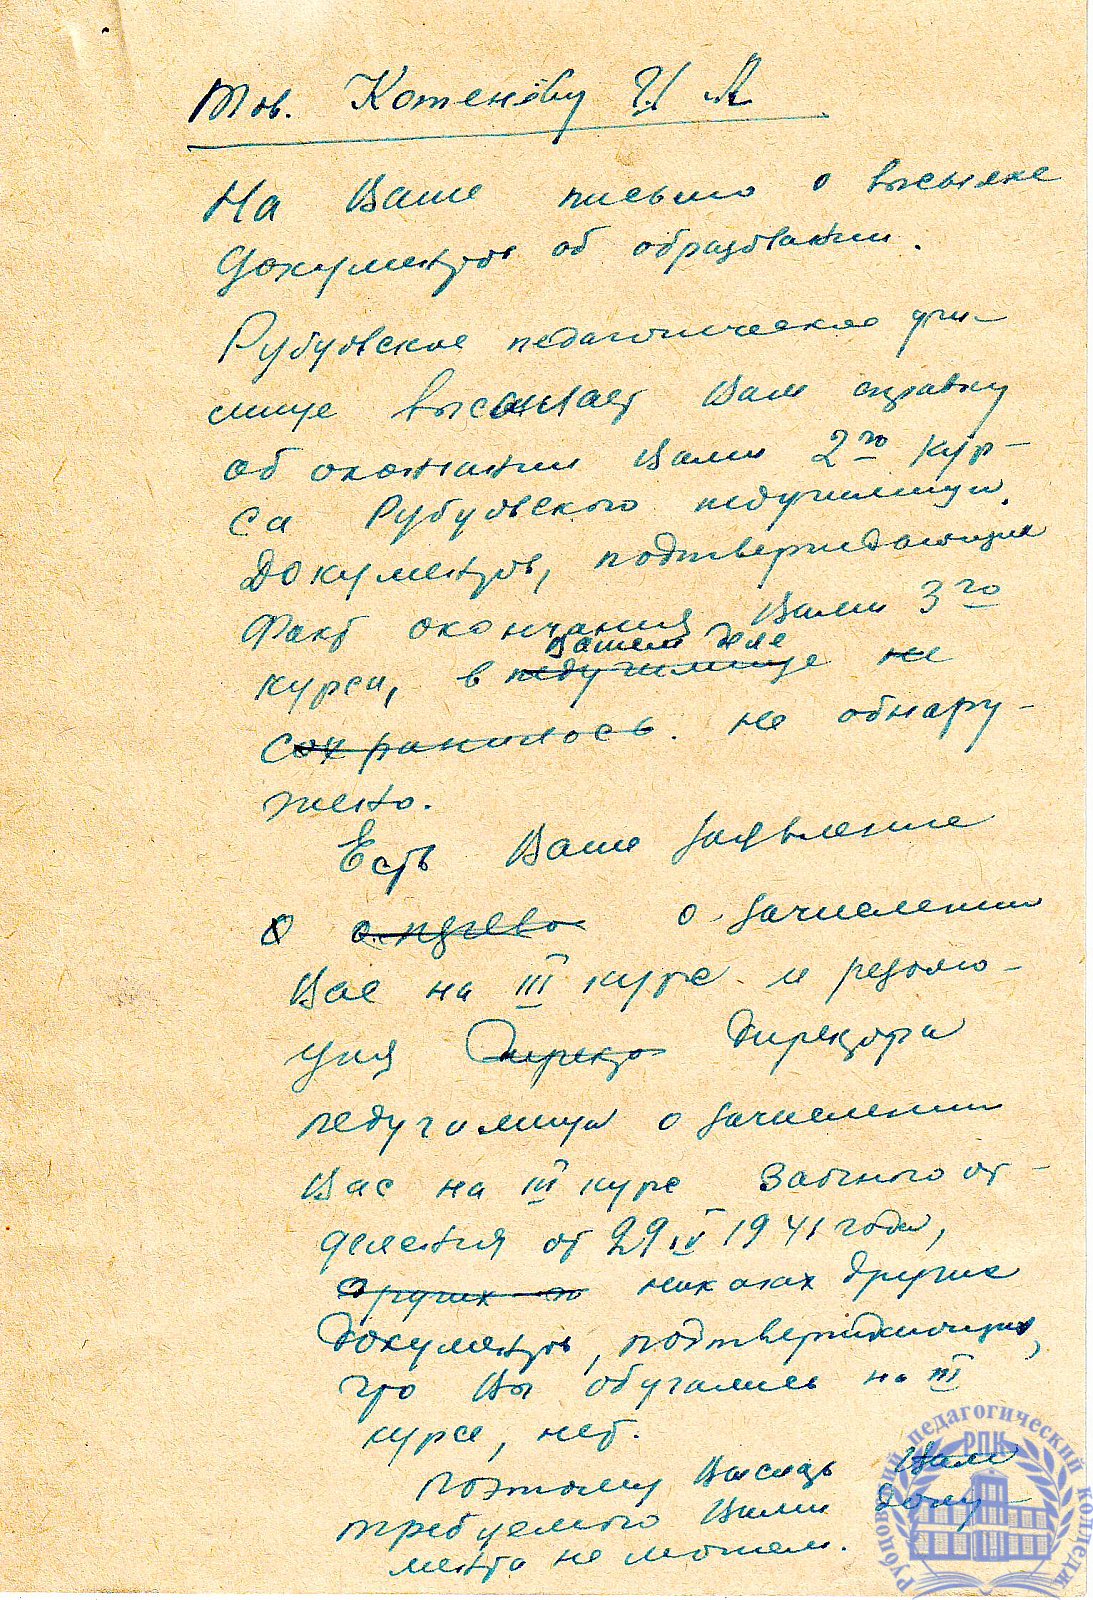 Тов. Котенёву И А
На Ваше письмо о высылке
документов об образовании.
Рубцовское педагогическое учи-
лище высылает Вам справку
об окончании Вами 2го кур-
са Рубцовского педучилища.
Документов, подтверждающих
факт окончания Вами 3го
Вашем деле
курса, в педучилище не
сохранилось. не обнару-
жено.
Есть Ваше заявление
о зачислении
Вас на III курс и резолю-
ция Директо Директора
педучилища о зачислении
Вас на III курс заочного от-
деления от 29 IV 1941 года,
других никаких других
документов, подтверждающих,
что Вы обучались на III
курсе, нет.
Поэтому выслать Вам
требуемого Вами доку-
мента не можем.
Рубцовский педагогический колледж
РПК